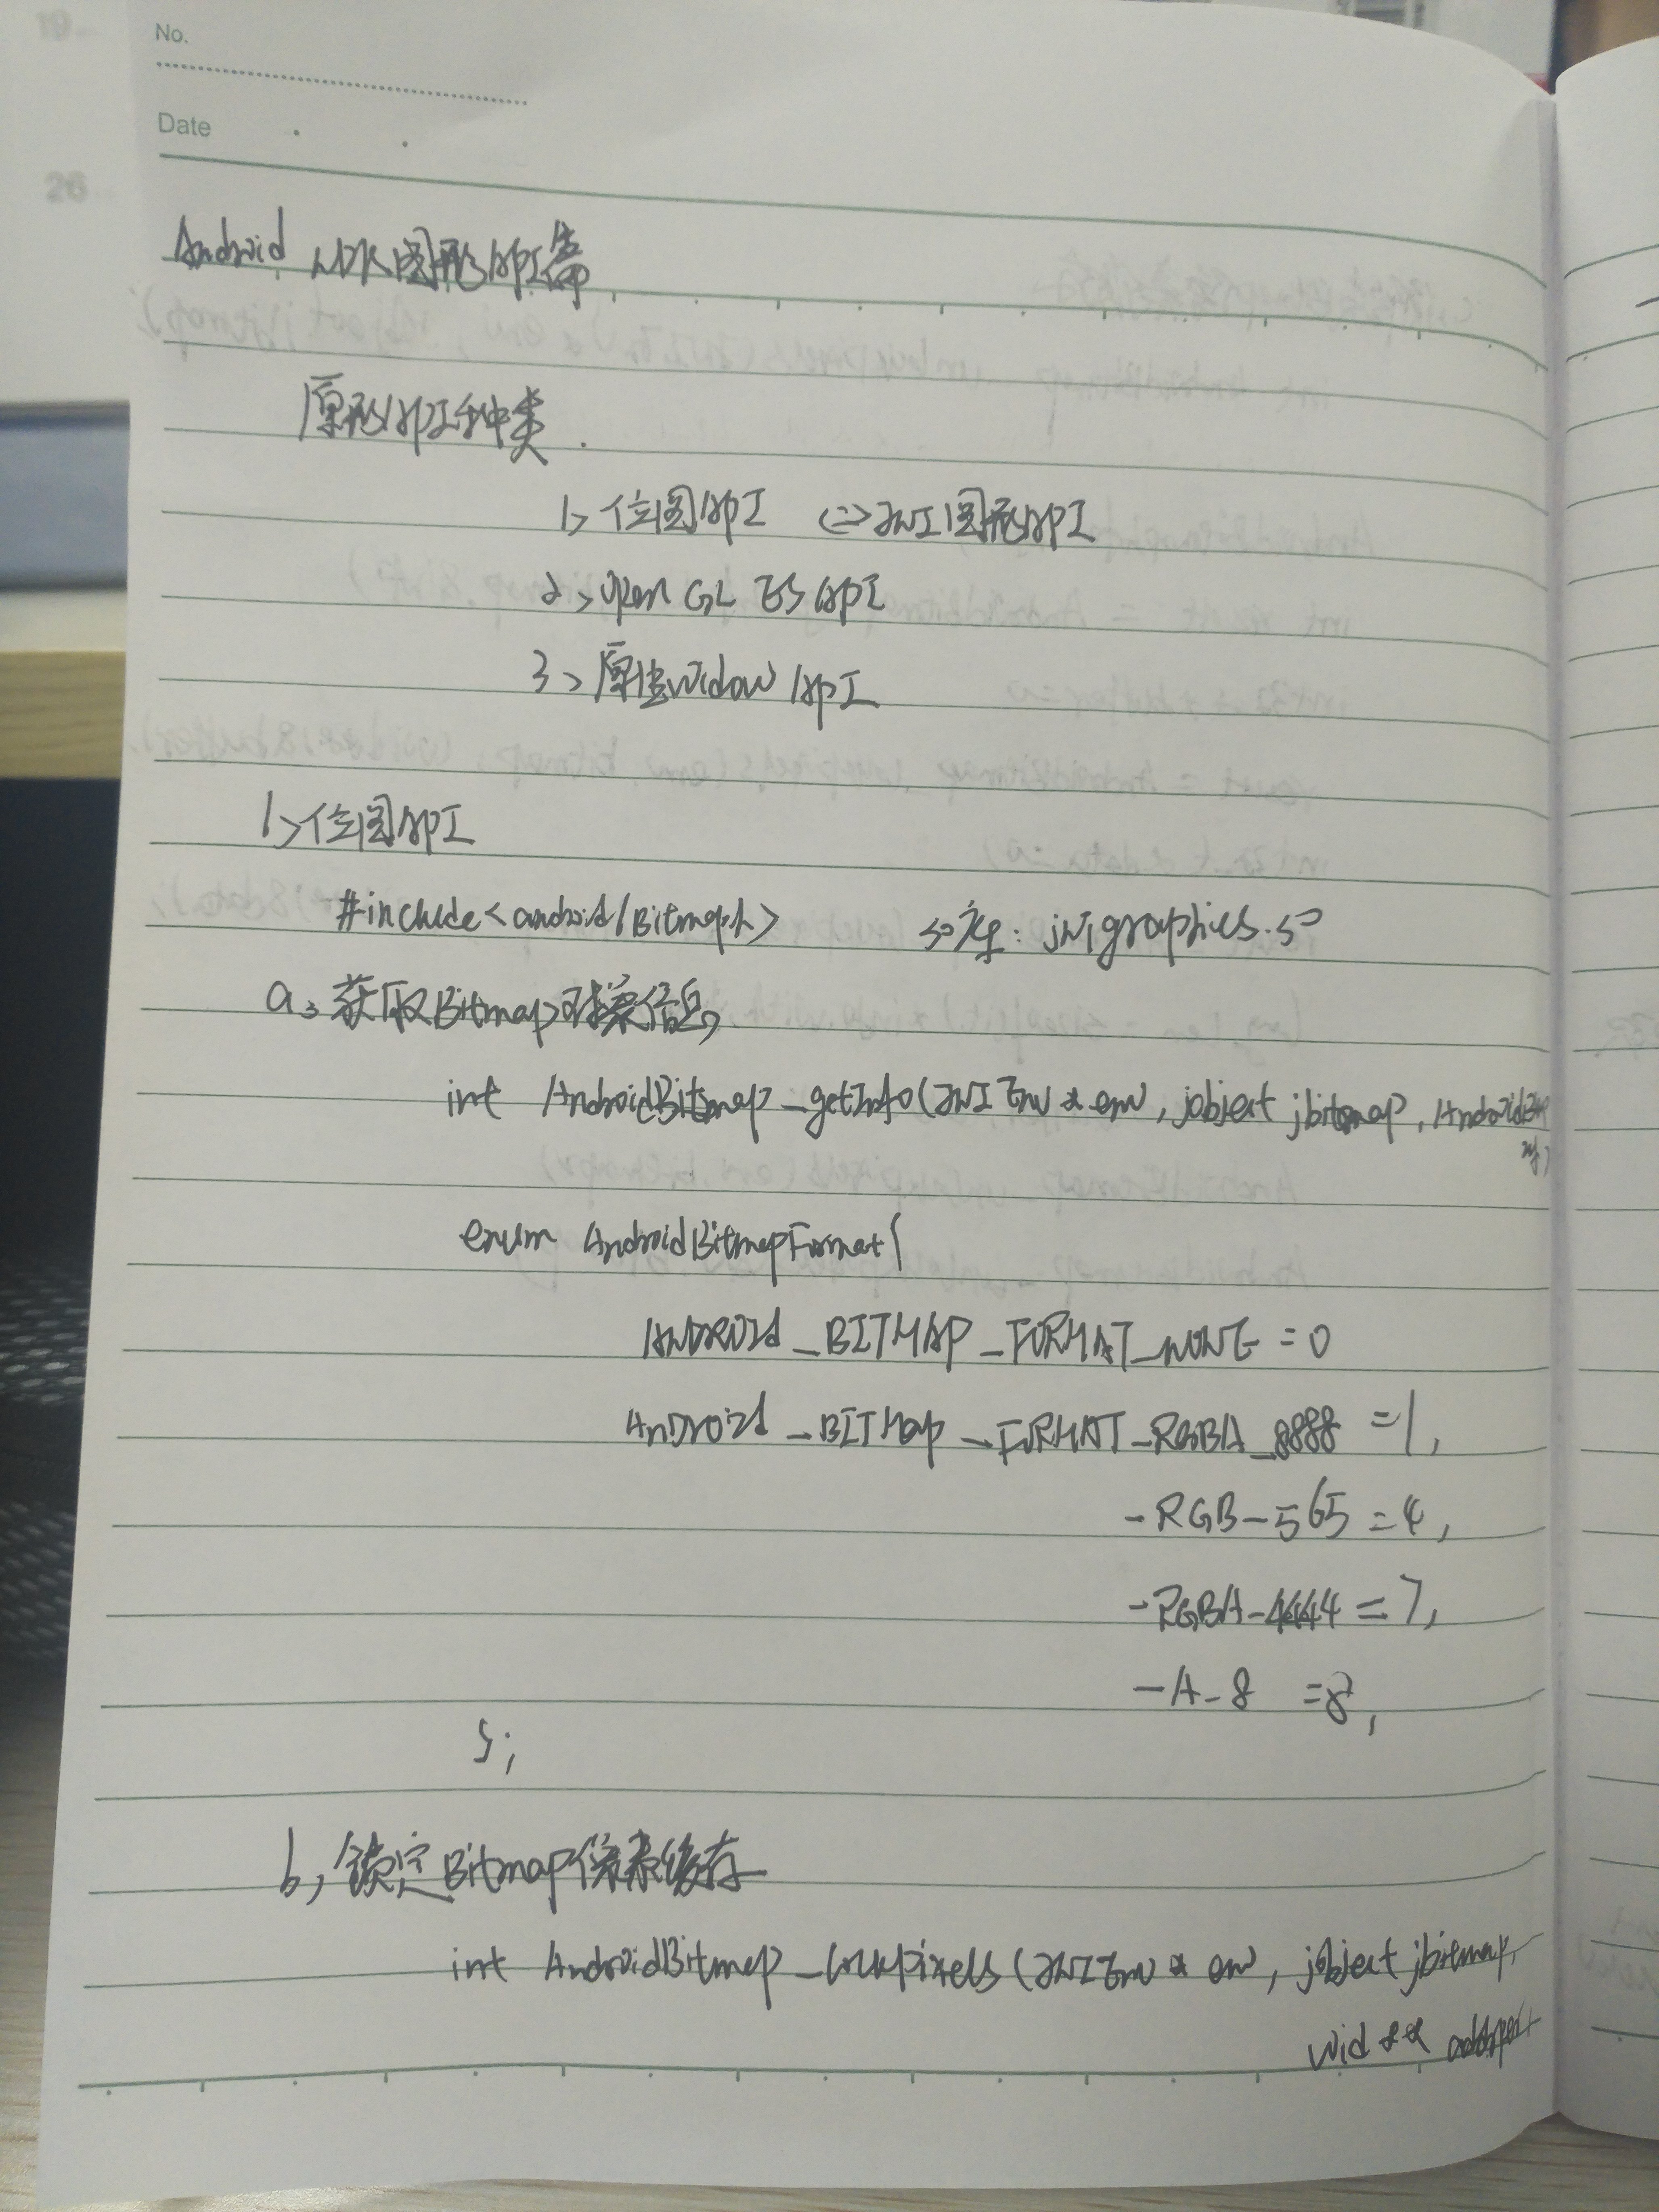 No.
Date
Android NDK图形API篇
原形API种类.
1> 位图API <=> JNI图形API
2> Open GL ES API
3> 原生Widow API
1>位图API
#include<android/Bitmap.h> so库: jnigraphics.so
a、获取Bitmap对象信息
int AndroidBitmap_getInfo(JNIEnv * env, jobject jbitmap,
enum AndroidBitmapFormat{
ANDROId_BITMAP_FORMAT_NONE = 0
AnDroid_BITMap_FORMAT_RGBA_8888 = 1,
-RGB-565 = 4,
-RGBA-4444 = 7,
-A-8 = 8,
};
b, 锁定Bitmap像素缓存
int AndroidBitmap_lockPixels(JNIEnv * env, jobject jbitmap,
void **
19
26